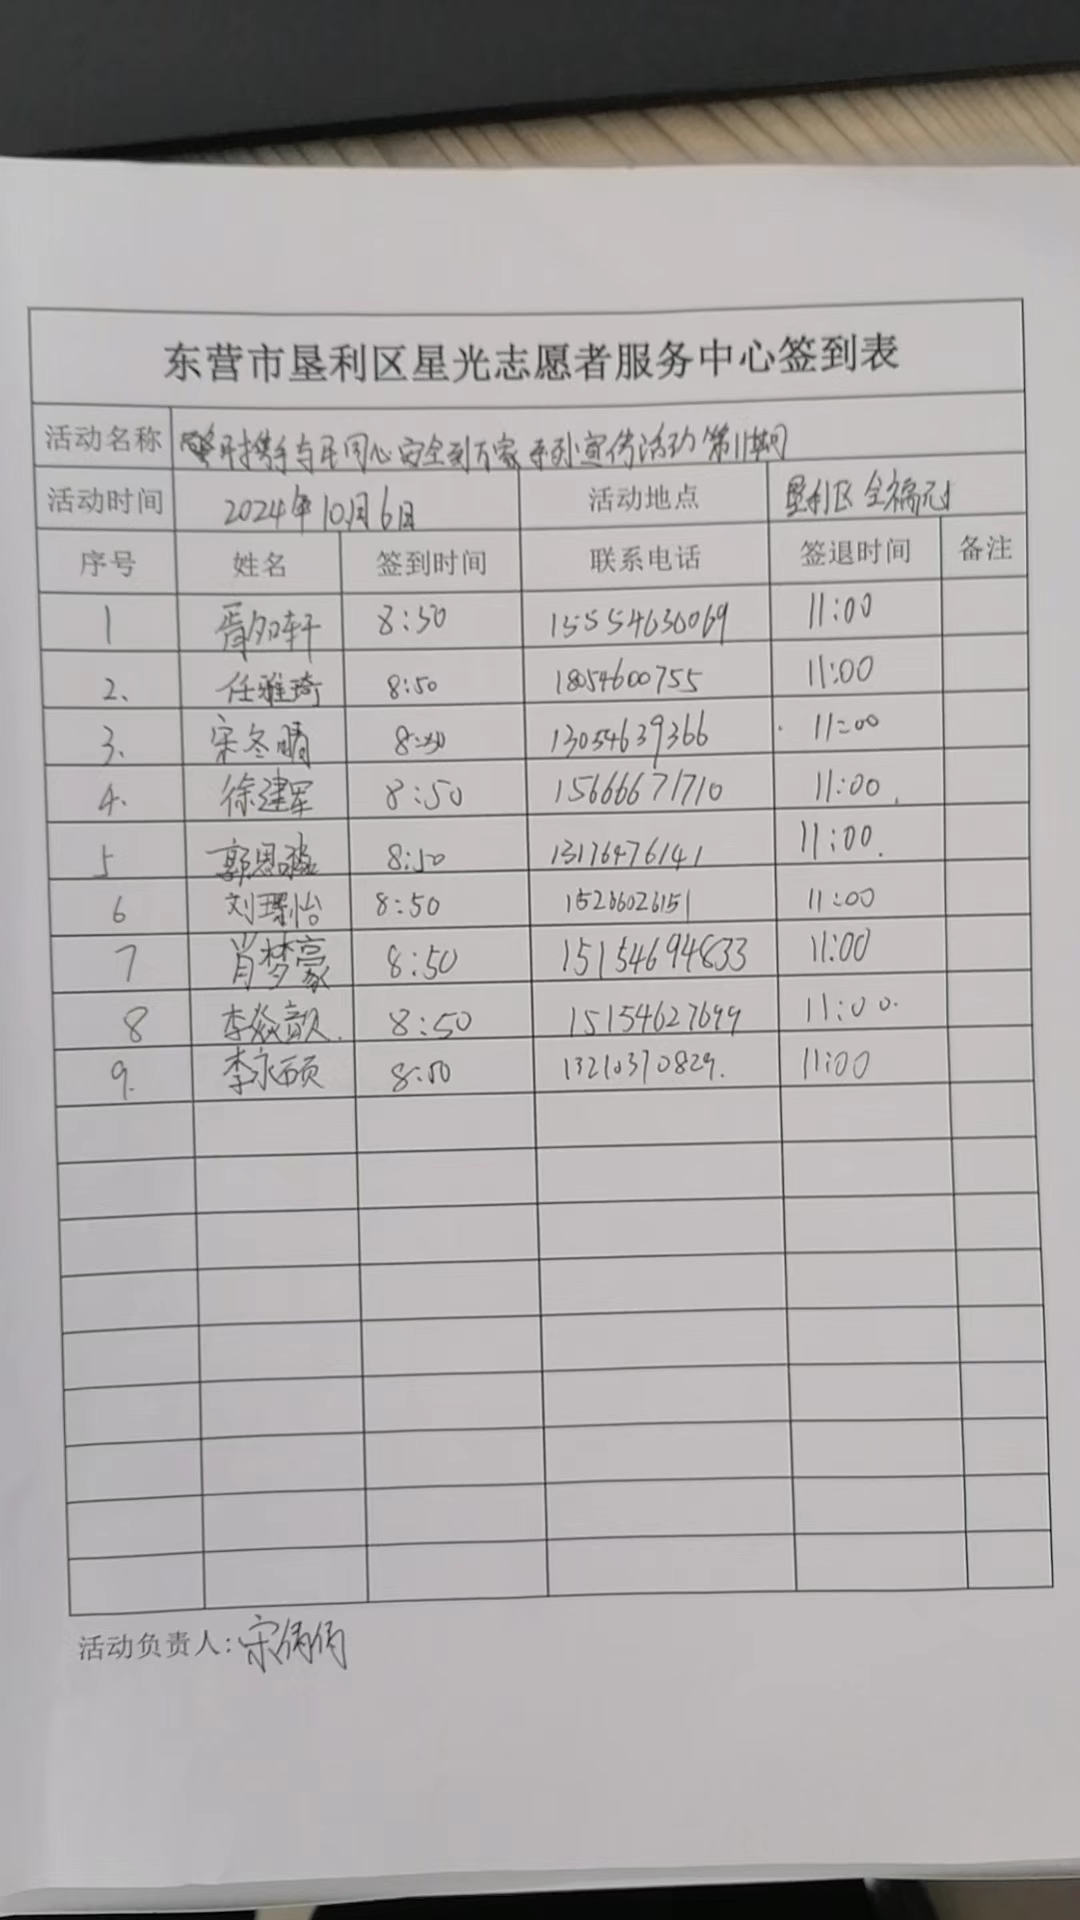 东营市垦利区星光志愿者服务中心签到表
活动名称 警民携手与民同心安全到万家系列宣传活动第11期
活动时间 2024年10月6日 活动地点 垦利区全福元
序号 姓名 签到时间 联系电话 签退时间 备注
1 轩 8:50 15554630069 11:00
2、 任雅琦 8:50 18054600755 11:00
3、 宋冬晴 8:50 13054639366 11:00
4. 徐建军 8:50 15666671710 11:00
5 郭思 8:50 13176476141 11:00
6 刘璟怡 8:50 15266026151 11:00
7 肖梦豪 8:50 15154694833 11:00
8 李焱 8:50 15154627699 11:00
9. 李永硕 8:50 13210370829 11:00
活动负责人:宋倩倩